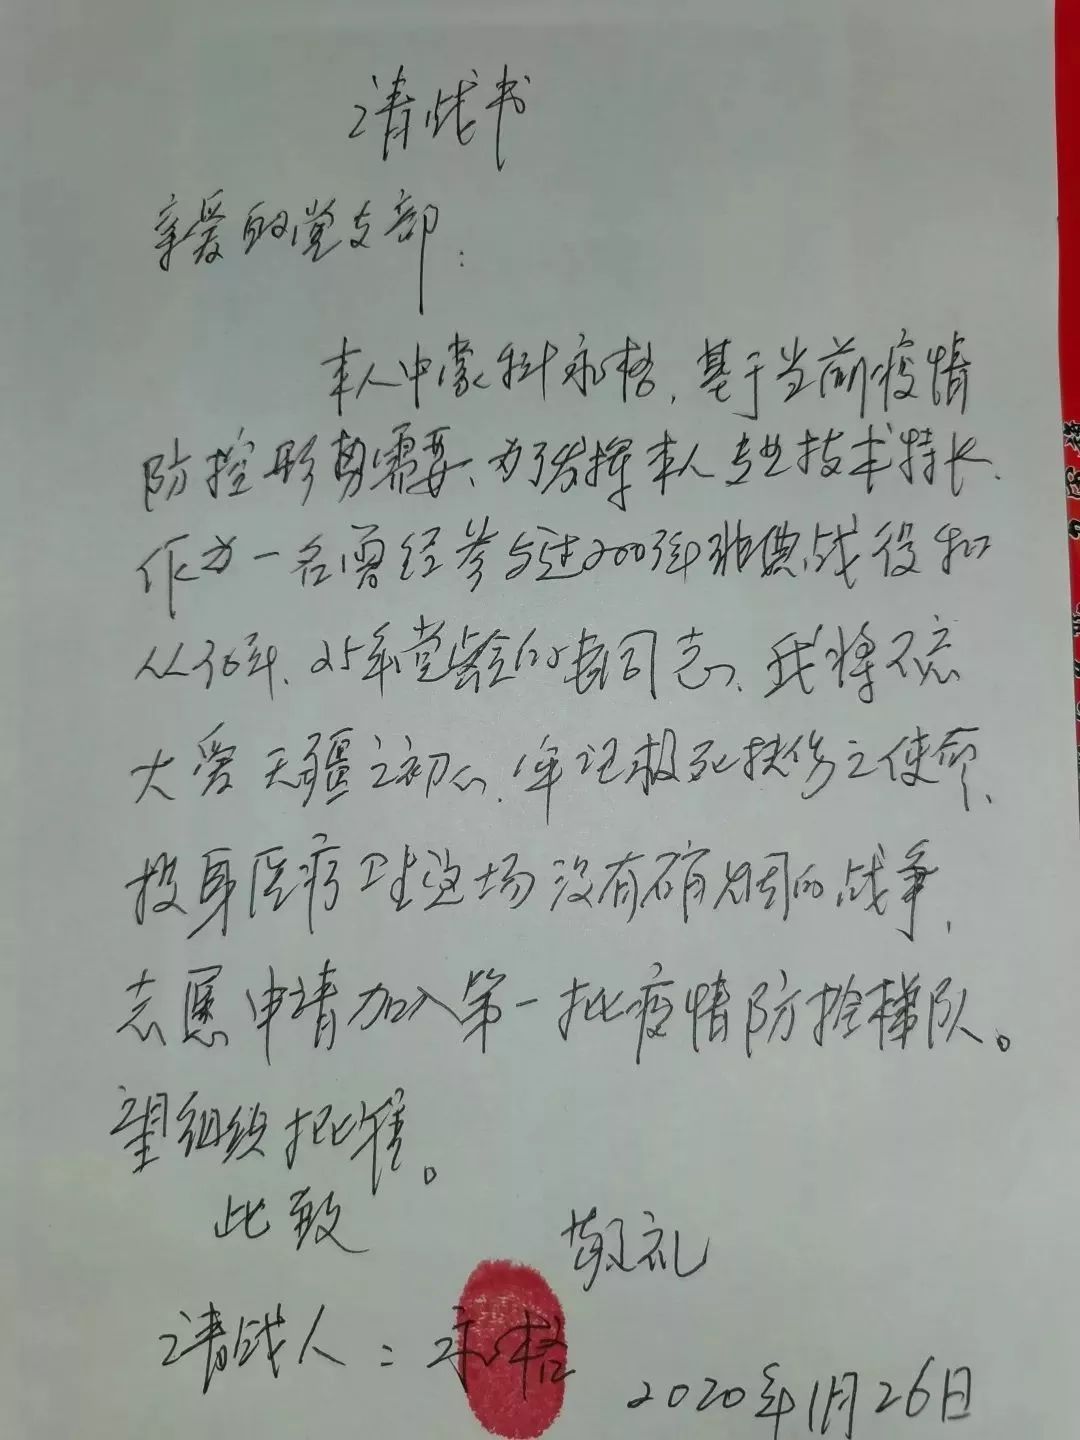 请战书
亲爱的党支部：
本人中蒙科永格，基于当前疫情
防控形势需要、为了发挥本人专业技术特长、
作为一名曾经参与过2003年非典战役和
从36年、25年党龄的老同志、我将不忘
大爱无疆之初心、牢记救死扶伤之使命、
投身医疗卫生这场没有硝烟的战争，
志愿申请加入第一批疫情防控梯队。
望组织批准。
此致
敬礼
请战人：永格
2020年1月26日